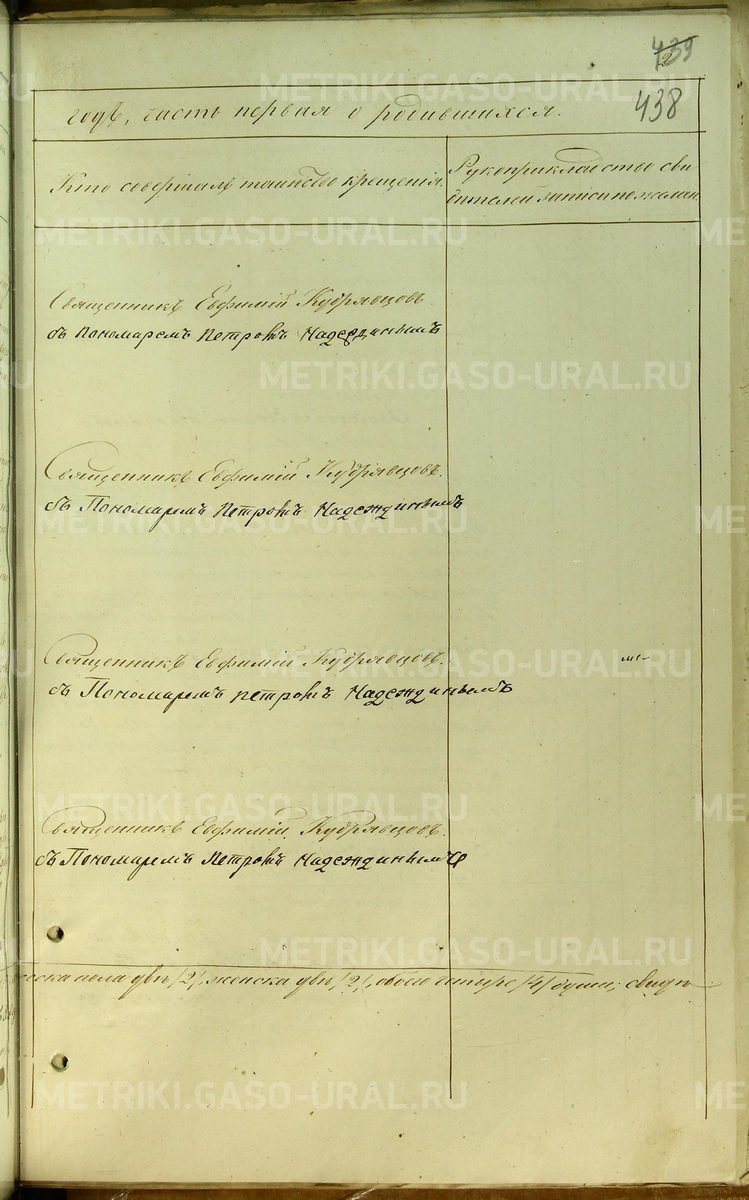 439
2
438
годѣ, часть первая о родившихся.
Кто совершалъ таинство крещенія. Рукоприкладство сви
дѣтелей записи по желан.
Священникъ Евфимій Кудрявцовъ
съ Пономаремъ Петромъ Надеждинымъ
Священникъ Евфимій Кудрявцовъ.
съ Пономаремъ Петромъ Надеждинымъ
Священникъ Евфимій Кудрявцовъ.
съ Пономаремъ петромъ Надеждинымъ
Священникъ Евфимій Кудрявцовъ.
съ Пономаремъ Петромъ Надеждинымъ
пола двѣ /2/, женска двѣ /2/, обоего четыре /4/ души; свидѣ
METRIKI.GASO-URAL.RU